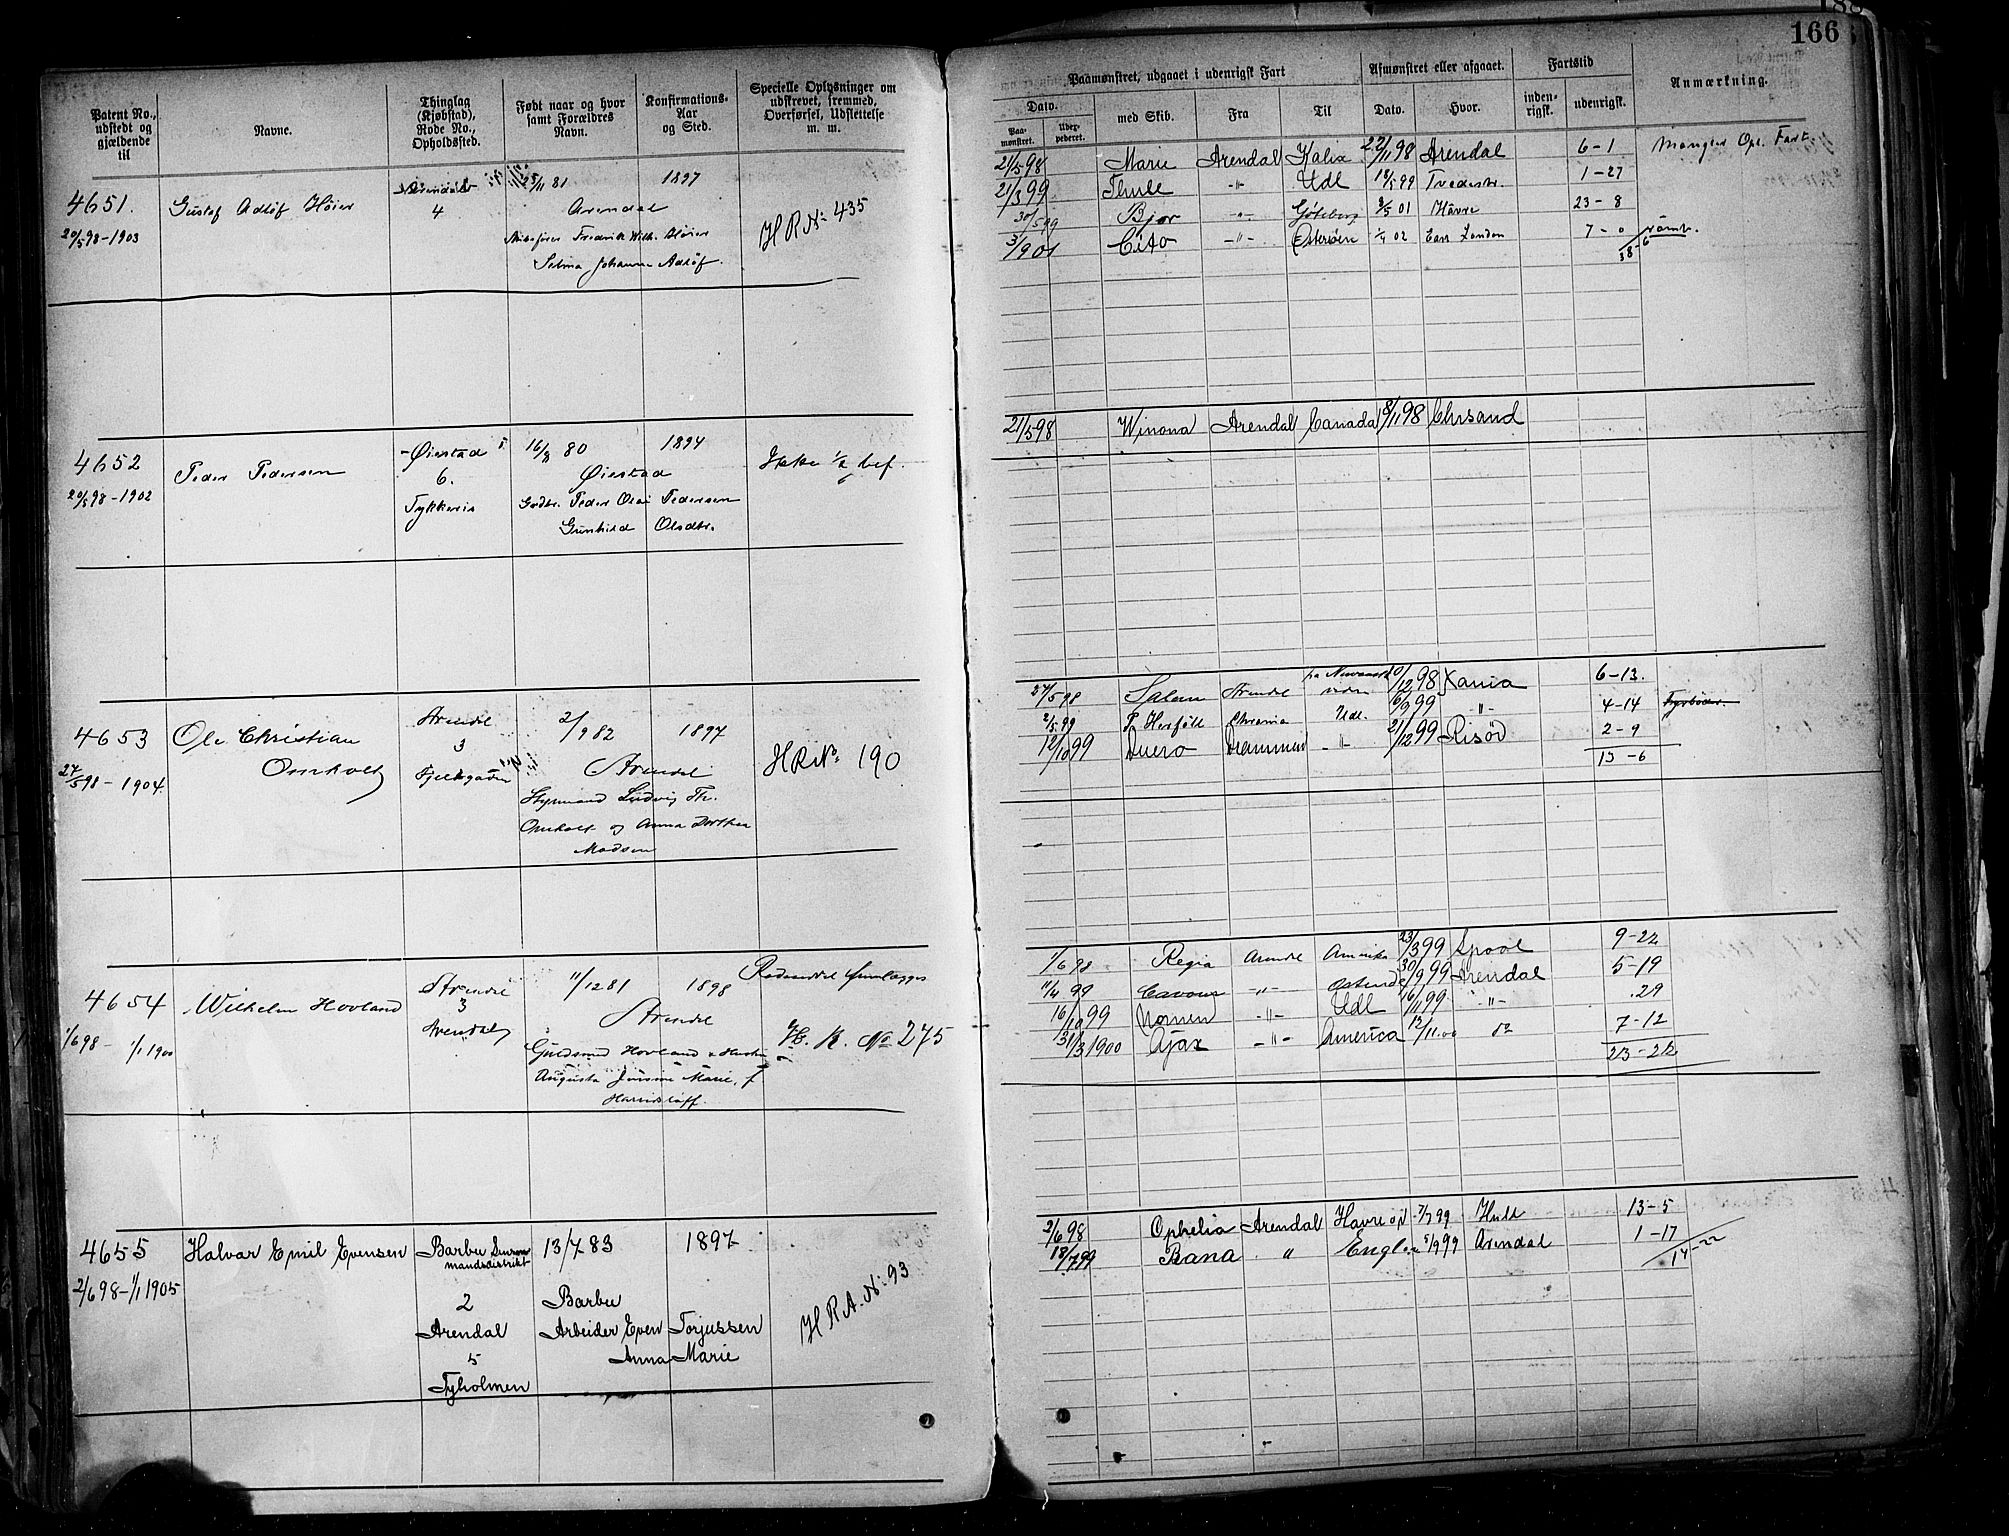 188
166
Patent No., udstedt og gjældende til
Navne.
Thinglag (Kjøbstad), Rode No., Opholdssted.
Født naar og hvor samt Forældres Navn.
Konfirmations-Aar og Sted.
Specielle Oplysninger om udskrevet, fremmed, Overførsel, Udslettelse m. m.
Paamønstret, udgaaet i udenrigsk Fart
Dato.
Paa-mønstret.
Udex-pederet.
med Skib.
Fra
Til
Afmønstret eller afgaaet.
Dato.
Hvor.
Fartstid
inden-rigsk.
udenrigsk.
Anmærkning.
4651.
20/5 98-1903
Gustaf Adlöf Høier
4
25/11 81
1897
Arendal
Frederik Wilh. Høier
Selma Johanne Adlöf.
H R No: 435
21/5 98 Marie Arendal Kalix 22/11 98 Arendal 6-1 Mangler Opl. Fart
21/3 99 Thule -"- Udl 18/5 99 Tvedestr. 1-27
30/5 99 Bjor -"- Göteborg 8/5 01 Havre 23-8
3/9 01 Cito -"- Østersøen 1/4 02 East London 7-0
38-6
4652
20/5 98-1902
Peder Pedersen
Øiestad
6.
16/8 80
1894
Øiestad
Gaardbr. Peder Olai Pedersen
Gunhild Olsdtr.
Ikke 1/2 bef.
21/5 98 Winona Arendal Canada 8/11 98 Chrsand
4653
27/5 98-1904.
Ole Christian
Omholt
Arendal
3
2/9 82
1897
Arendal
Styrmand Ludvig Th.
Omholt og Anna Dorthea
Madsen
H R No: 190
27/5 98 Salem Arendal 10/12 98 Xania 6-13.
2/5 99 Chrania Udl. 6/9 99 " 4-14 Fyrbøder.
12/10 99 Duero Drammen -"- 21/12 99 Risør 2-9
13-6
4654
1/6 98 - 1/1 1900
Wilhelm Hovland
Arendal
3
Arendal
11/12 81
1898
Arendal
Guldsmed Hovland & Hustru
Augusta Marie, f
H. R. No 275
1/6 98 Regia Arendal Amerika 23/3 99 Lpool 9-22
11/4 99 Cavour -"- Ostende 30/9 99 Arendal 5-19
16/10 99 Nornen -"- Udl 16/11 99 -"- .29
31/3 1900 Ajax -"- America 12/11.00 do 7-12
23-22
4655
2/6 98-1/1 1905
Halvar Emil Evensen
Barbu Lensmandsdistrikt
2
Arendal
5
Tyholmen
13/7 83
1897
Barbu
Arbeider Even Torjussen
Anna Marie
H R. A. No: 93
2/6 98 Ophelia Arendal Havre 7/7 99 Hull 13-5
18/7 99 Bana " Engl. 5/9 99 Arendal 1-17
14-22